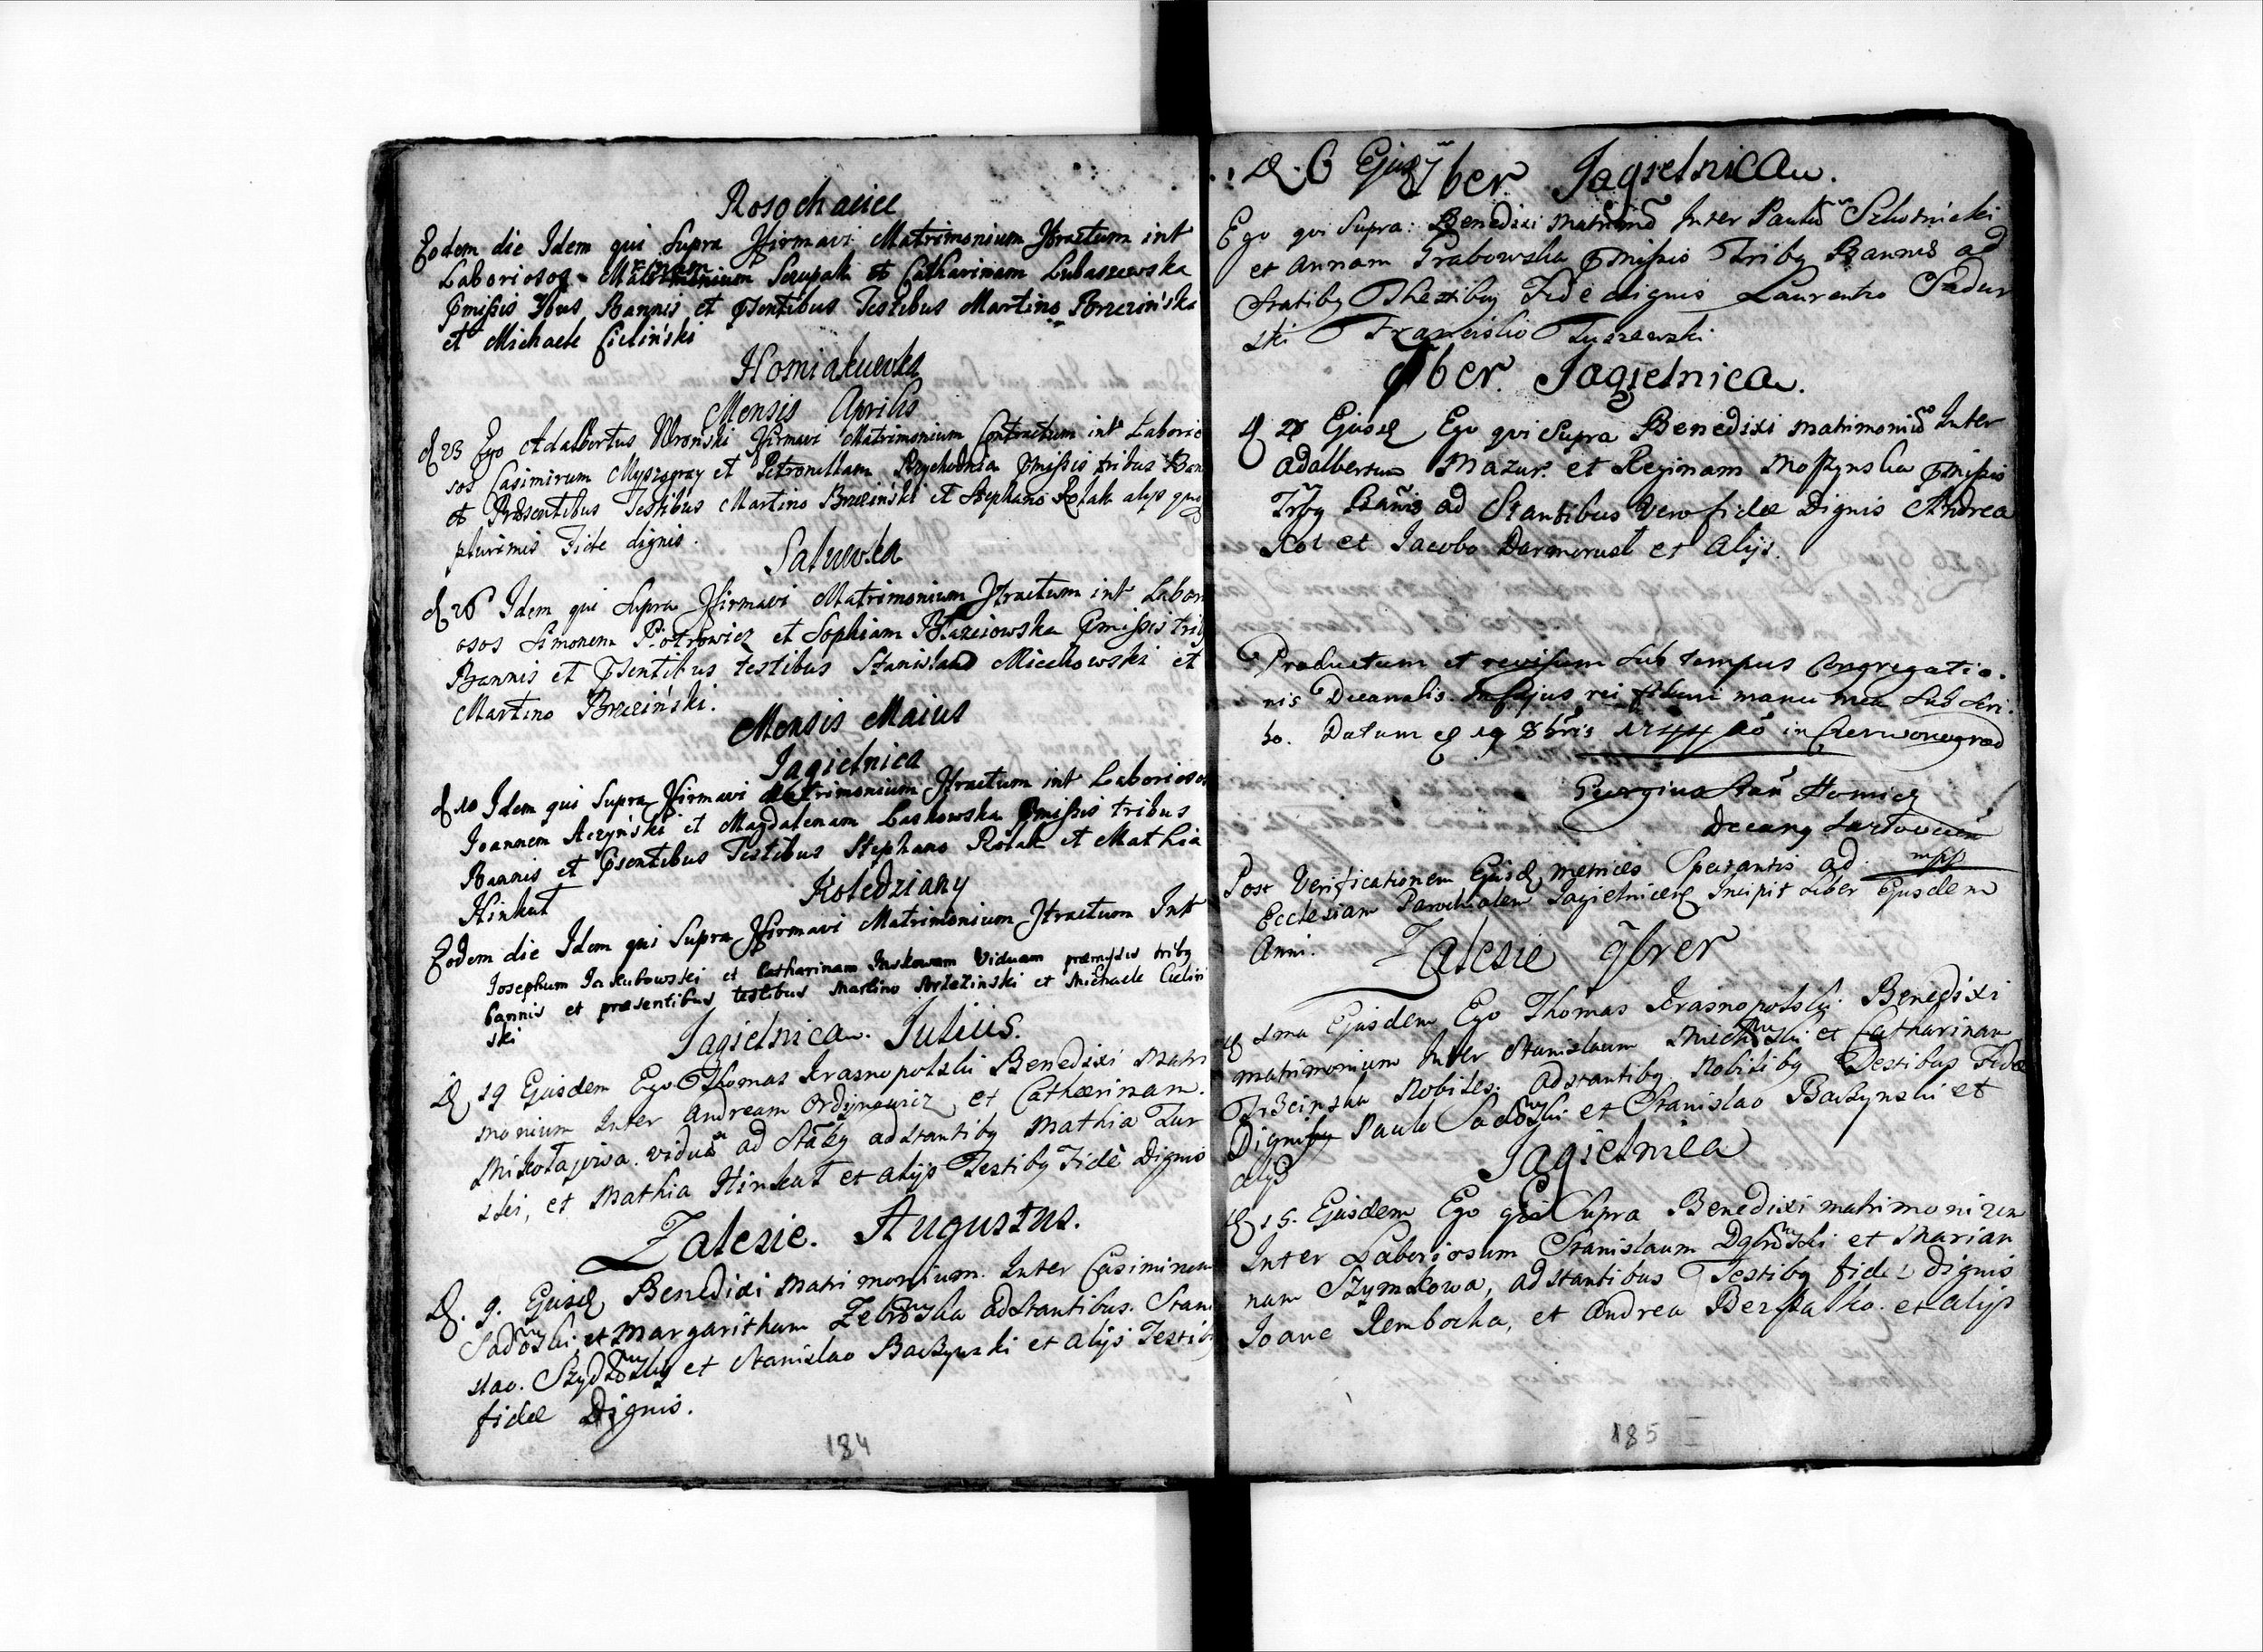 Rosochacice
Eodem die Idem qui Supra Xfirmavi Matrimonium Xtractum int
Laboriosos Martinum Szczupak et Catharinam Lubaszewska
Pmissis 3bus Bannis et Psentibus Testibus Martino Brzeziński
et Michaele Cieliński
Hosniakuwka
Mensis Aprilis
d 23 Ego Adalbertus Wronski Xfirmavi Matrimonium Contractum int Laborio
sos Casimirum et Petronellam Przychodnia Pmissis tribus Ban
et Præsentibus Testibus Martino Brzeziński et Stephano Rolak alijs qua
plurimis Fide dignis.
Saluwka
d 26 Idem qui Supra Xfirmavi Matrimonium Xtractum int Labori
osos Simonem Piotrowicz et Sophiam Błazeiowska Pmissis trib
Bannis et Psentibus testibus Stanislao Miechowski et
Martino Brzeziński.
Mensis Maius
Jagielnica
d 10 Idem qui Supra Xfirmavi Matrimonium Xtractum int Laboriosos
Joannem Aczyński et Magdalenam Laskowska Pmissis tribus
Bannis et Psentibus Testibus Stephano Rolak et Mathia
Hinkut
Koledziany
Eodem die Idem qui Supra Xfirmavi Matrimonium Xtractum Int
Josephum Jakubowski et Catharinam Juskowam Viduam præmissis tribq
bannis et præsentibus testibus Martino Brzezinski et Michaele Cielin
ski
Jagielnica. Julius.
D 19 Ejusdem Ego Thomas Krasnopolski Benedixi Matri
monium Inter Andream Ordynowicz et Catharinam.
Mikołajowa. viduã ad Stãbq adstantibq Mathia Tur
ski, et Mathia Hinkut et alijs Testibq Fidè Dignis
Zalesie. Augustus.
D. 9. Ejusd Benedixi Matrimonium. Inter Casimirum
Sadoski et Margaritham Zebroska adstantibus. Stani
slao. Szydłoski et Stanislao Baczynski et alijs Testibq
fidæ Dignis.
184
D. 6 Ejusd 7ber Jagielnica.
Ego qui Supra: Benedixi Matrimoõ Inter Paulũ Szkotnicki
et Annam Grabowska Pmissis Tribq Bannis ad
Statibq Thestibq Fide dignis Laurentio Padur
ski Francisko Tuszewski
8ber. Jagielnica.
D 28 Ejusd Ego qui Supra Benedixi matrimoniũ Inter
Adalbertum Mazur. et Reginam Moszynska Pmissis
Trbq Banis ad Stantibus vero fidæ Dignis Andrea
Kot et Jacobo Darmorust et Alijs.
Productum et revisum Sub tempus Congregatio.
nis Decanalis. In Cujus rei fidem manu mea Subscri.
bo. Datum d 19 8bris 1744 aõ in Czerwonogrod
Georgius Stan Homicz
Decanq
mpp
Post Verificationem Ejusd metrices Spectantis ad
Ecclesiam Parochialem Jagielnicens Incipit Liber Ejusdem
Anni.
Zalesie 9brer
d 1ma Ejusdem Ego Thomas Krasnopolski Benedixi
matrimonium Inter Stanislaum Miechoski et Catharinam
Trzcinska Nobiles. adstantibq Nobilibq Testibus Fide
Dignibq Paulo Sadoski et Stanislao Baczynski et
alijs
Jagielnica
D 15. Ejusdem Ego qui Supra Benedixi matrimonium
Inter Laboriosum Stanislaum Dąbroski et Marian
nam Szymkowa, adstantibus Testibq fide Dignis
Joane Rembocha, et Andrea Berszatko. et alijs
185